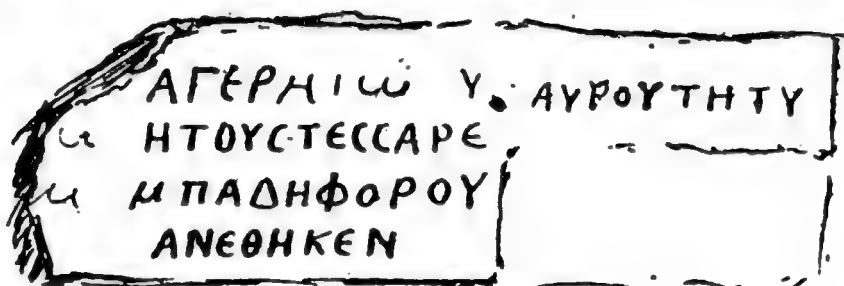 ΑΓΕΡΗΙω Υ. ΑΥΡΟΥΤΗΤΥ
ΗΤΟΥC·ΤΕCCΑΡΕ
ΜΠΑΔΗΦΟΡΟΥ
ΑΝΕΘΗΚΕΝ